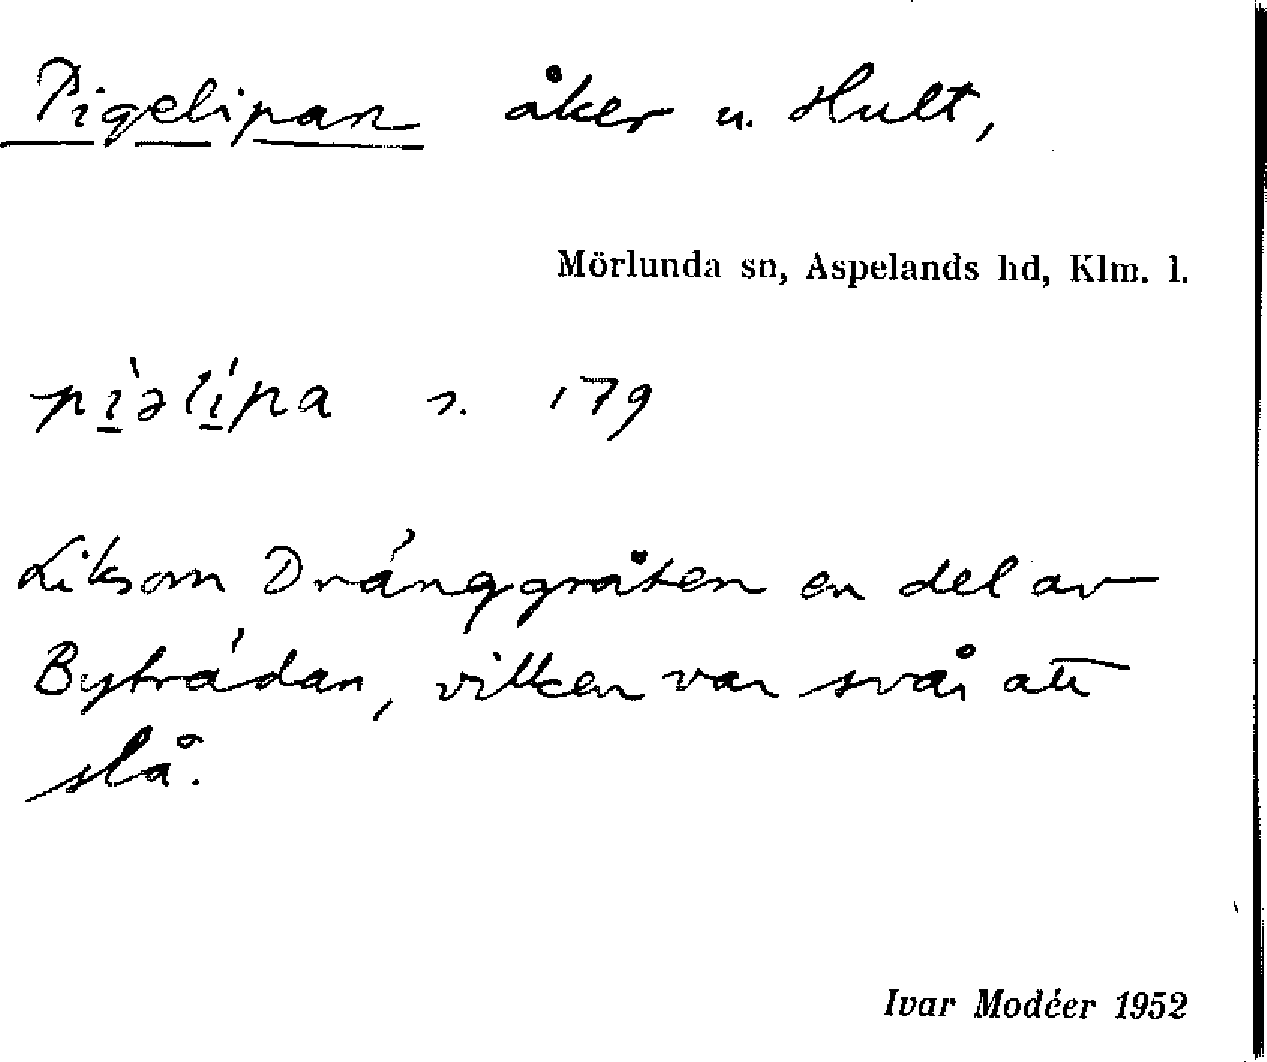 Pigelipan åker u. Hult,
Mörlunda sn, Aspelands hd, Klm. l.
pì̱əlí̱pa s. 179
Liksom Dránggråten en del av
Bytrádan, vilken var svår att
slå.
Ivar Modéer 1952